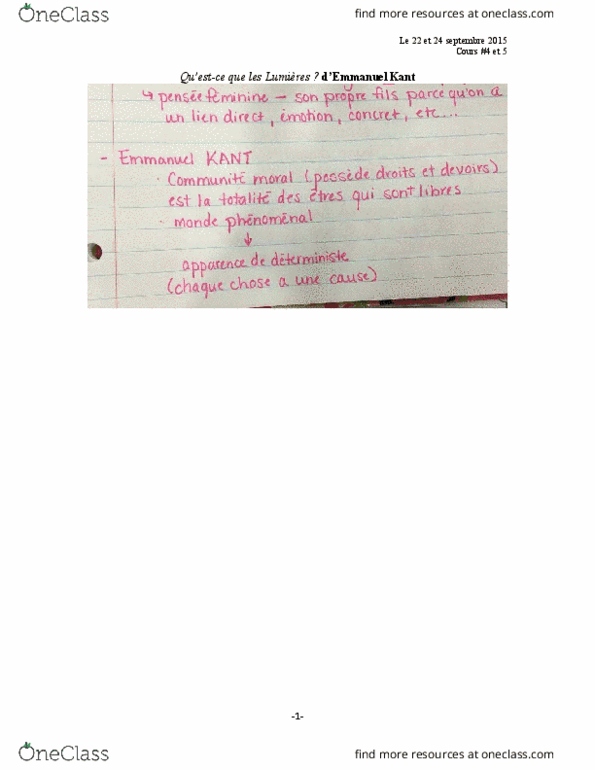 OneClass
find more resources at oneclass.com
Le 22 et 24 septembre 2015
Cours #4 et 5
Qu'est-ce que les Lumières ? d'Emmanuel Kant
↳ pensée féminine – son propre fils parce qu'on a
un lien direct, émotion, concret, etc...
- Emmanuel KANT
· Communité moral (possède droits et devoirs)
est la totalité des êtres qui sont libres
· monde phénoménal
↓
apparence de déterministe
(chaque chose a une cause)
-1-
OneClass
find more resources at oneclass.com